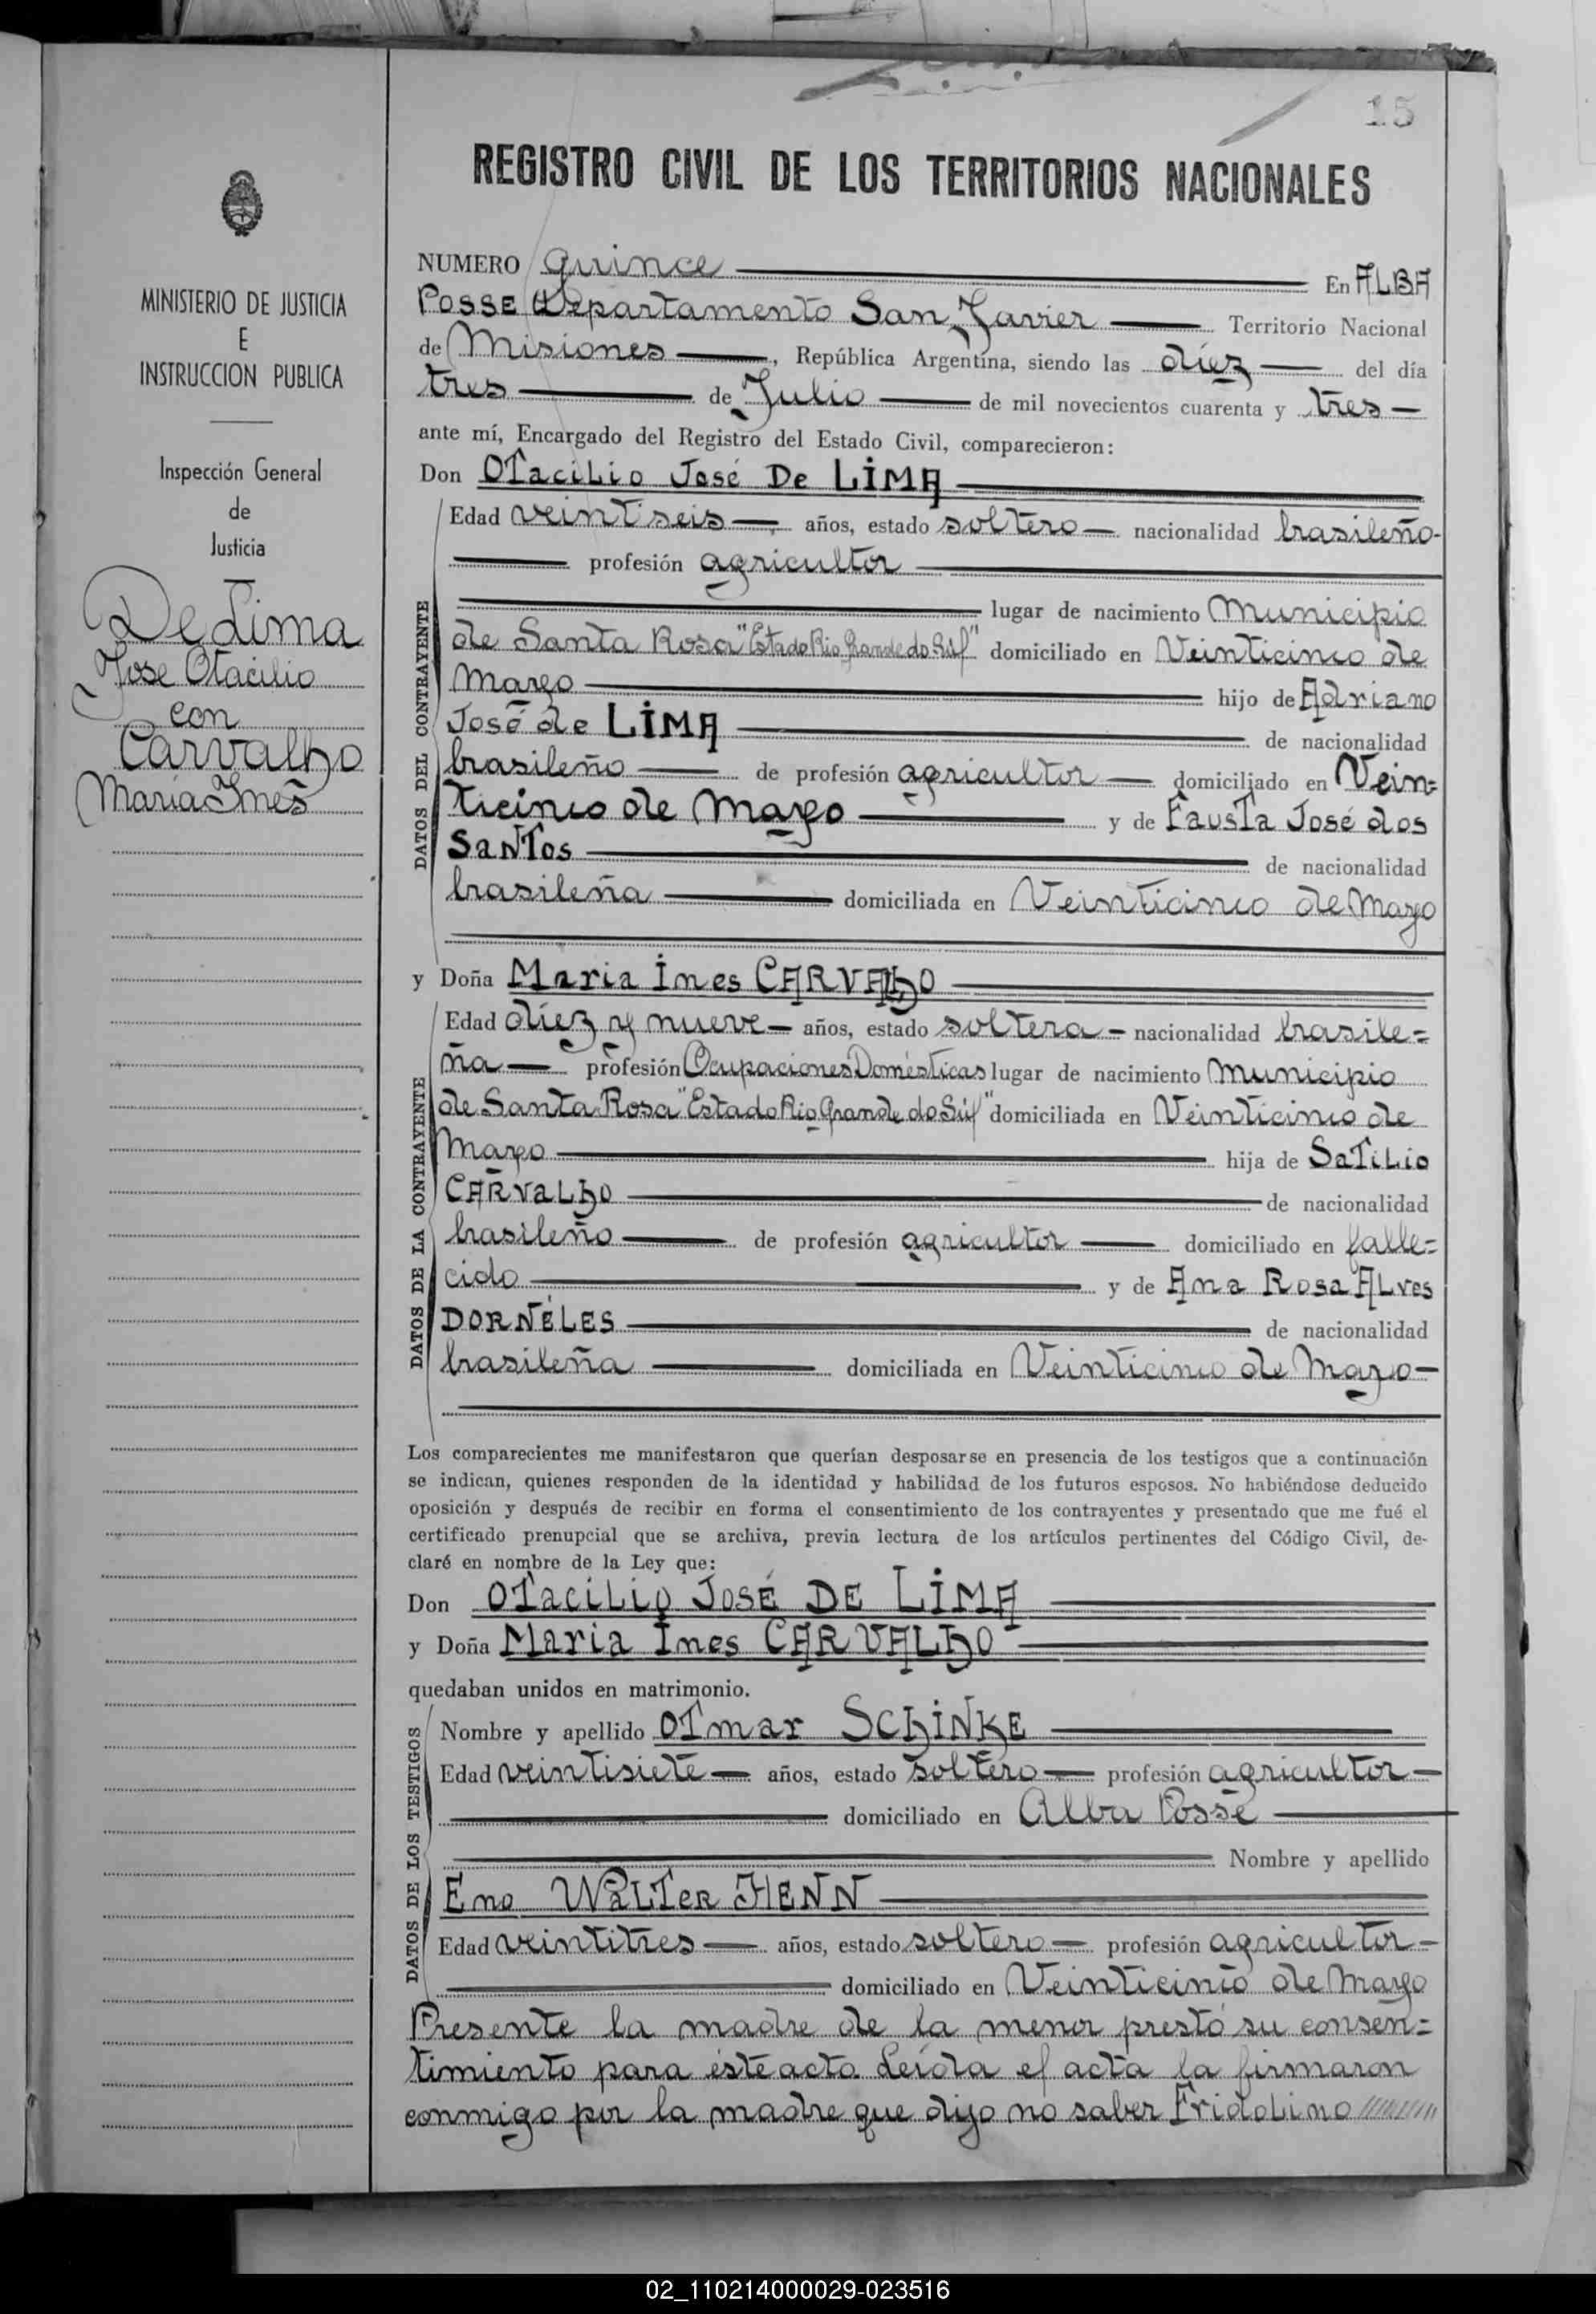 15
REGISTRO CIVIL DE LOS TERRITORIOS NACIONALES
MINISTERIO DE JUSTICIA
E
INSTRUCCION PUBLICA
Inspección General
de
Justicia
De Lima
Jose Otacilio
con
Carvalho
Maria Ines
NUMERO quince En ALBA
POSSE Departamento San Javier Territorio Nacional
de Misiones, República Argentina, siendo las diez del día
tres de Julio de mil novecientos cuarenta y tres
ante mí, Encargado del Registro del Estado Civil, comparecieron:
Don OTaciLio José De LiMA
DATOS DEL CONTRAYENTE
Edad veintiseis años, estado soltero nacionalidad brasileño
profesión agricultor
lugar de nacimiento Municipio
de Santa Rosa "Estado Rio Grande do Súl" domiciliado en Veinticinco de
Mayo hijo de Adriano
José de LiMA de nacionalidad
brasileño de profesión agricultor domiciliado en Vein=
ticinco de Mayo y de FausTa José dos
SanTos de nacionalidad
brasileña domiciliada en Veinticinco de Mayo
y Doña Maria ines CARVALhO
DATOS DE LA CONTRAYENTE
Edad diez y nueve años, estado soltera nacionalidad brasile=
ña profesión Ocupaciones Domésticas lugar de nacimiento Municipio
de Santa Rosa "Estado Rio Grande do Súl" domiciliada en Veinticinco de
Mayo hija de SaTiLio
CARVaLhO de nacionalidad
brasileño de profesión agricultor domiciliado en falle=
cido y de Ana Rosa ALves
DORNÉLES de nacionalidad
brasileña domiciliada en Veinticinco de Mayo
Los comparecientes me manifestaron que querían desposarse en presencia de los testigos que a continuación
se indican, quienes responden de la identidad y habilidad de los futuros esposos. No habiéndose deducido
oposición y después de recibir en forma el consentimiento de los contrayentes y presentado que me fué el
certificado prenupcial que se archiva, previa lectura de los artículos pertinentes del Código Civil, de-
claré en nombre de la Ley que:
Don OTaciLio JOSÉ DE LiMA
y Doña Maria ines CARVALhO
quedaban unidos en matrimonio.
DATOS DE LOS TESTIGOS
Nombre y apellido OTmar SChiNKE
Edad veintisiete años, estado soltero profesión agricultor
domiciliado en Alba Posse
Nombre y apellido
Eno WaLTeR HENN
Edad veintitres años, estado soltero profesión agricultor
domiciliado en Veinticinco de Mayo
Presente la madre de la menor prestó su consen=
timiento para éste acto. Leída el acta la firmaron
conmigo por la madre que dijo no saber FridoLino
02_110214000029-023516